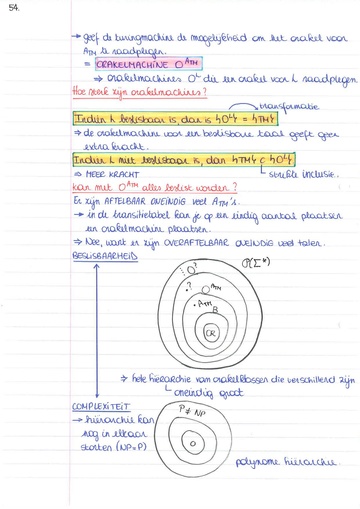 54.
→ geef de turingmachine de mogelijkheid om het orakel voor
ATM te raadplegen.
= ORAKELMACHINE O^ATM
⇒ orakelmachines O^L die een orakel voor L raadplegen
Hoe sterk zijn orakelmachines?
transformatie
Indien L beslisbaar is, dan is {O^L} = {TM}
⇒ de orakelmachine voor een beslisbare taal geeft geen
extra kracht.
Indien L niet beslisbaar is, dan {TM} ⊂ {O^L}
⇒ MEER KRACHT
strikte inclusie.
kan met O^ATM alles beslist worden?
Er zijn AFTELBAAR ONEINDIG veel ATM's.
→ in de transitietabel kan je op een eindig aantal plaatsen
een orakelmachine plaatsen.
⇒ Nee, want er zijn OVERAFTELBAAR ONEINDIG veel talen.
BESLISBAARHEID
P(Σ*)
O?
?
O^ATM
ATM
B
CR
⇒ hele hiërarchie van orakelklassen die verschillend zijn
oneindig groot
COMPLEXITEIT
→ hiërarchie kan
nog in elkaar
storten (NP=P)
P ≠ NP
polynome hiërarchie.